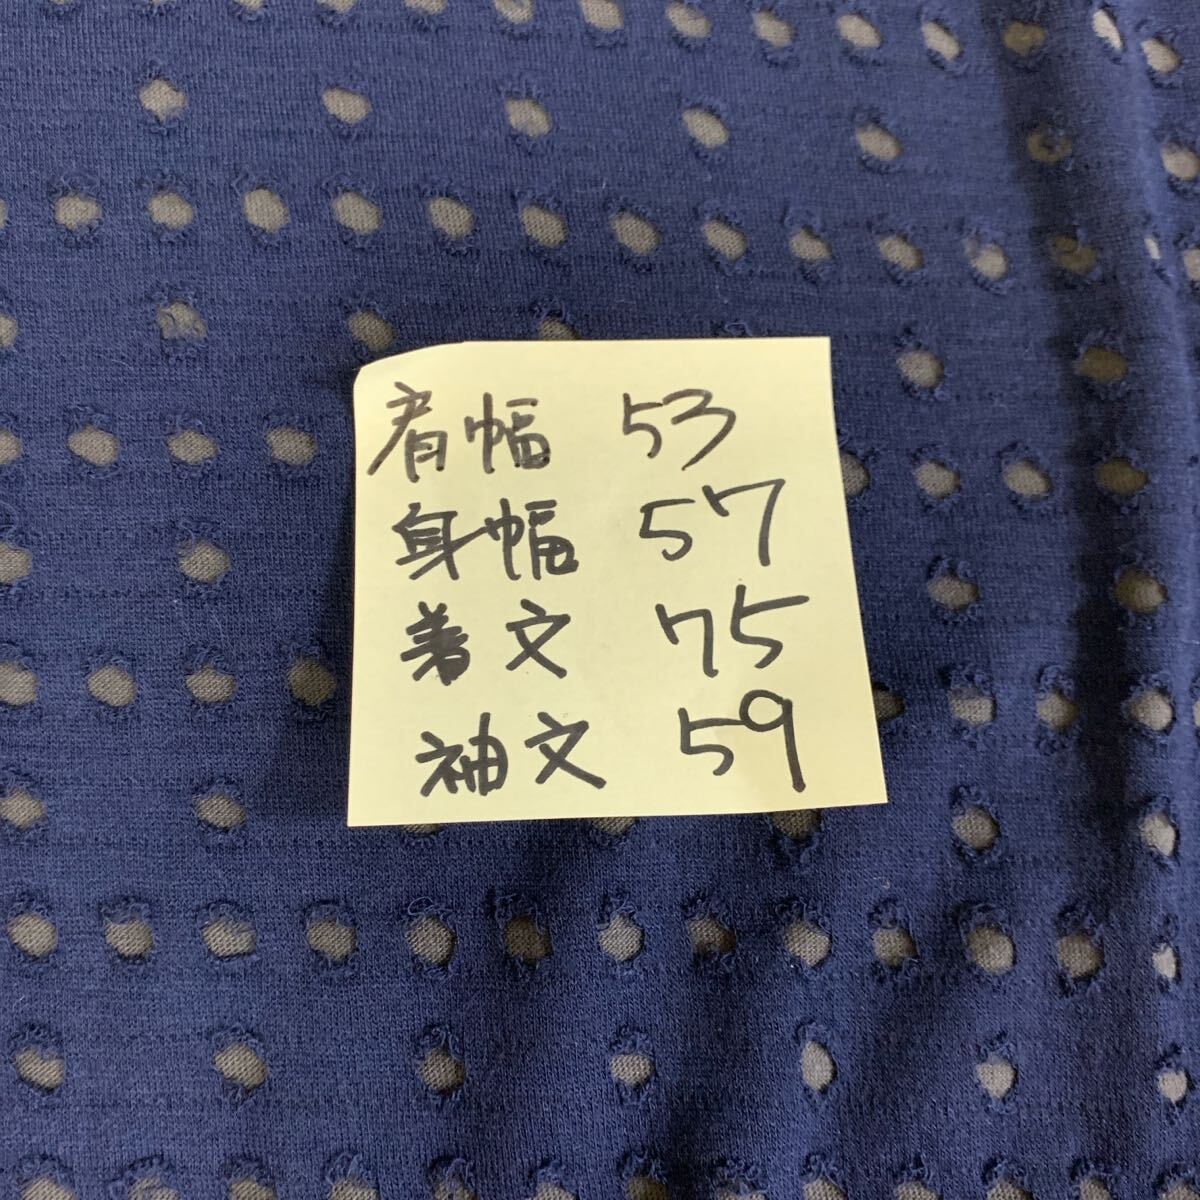 肩幅 53
身幅 57
着文 75
袖文 59